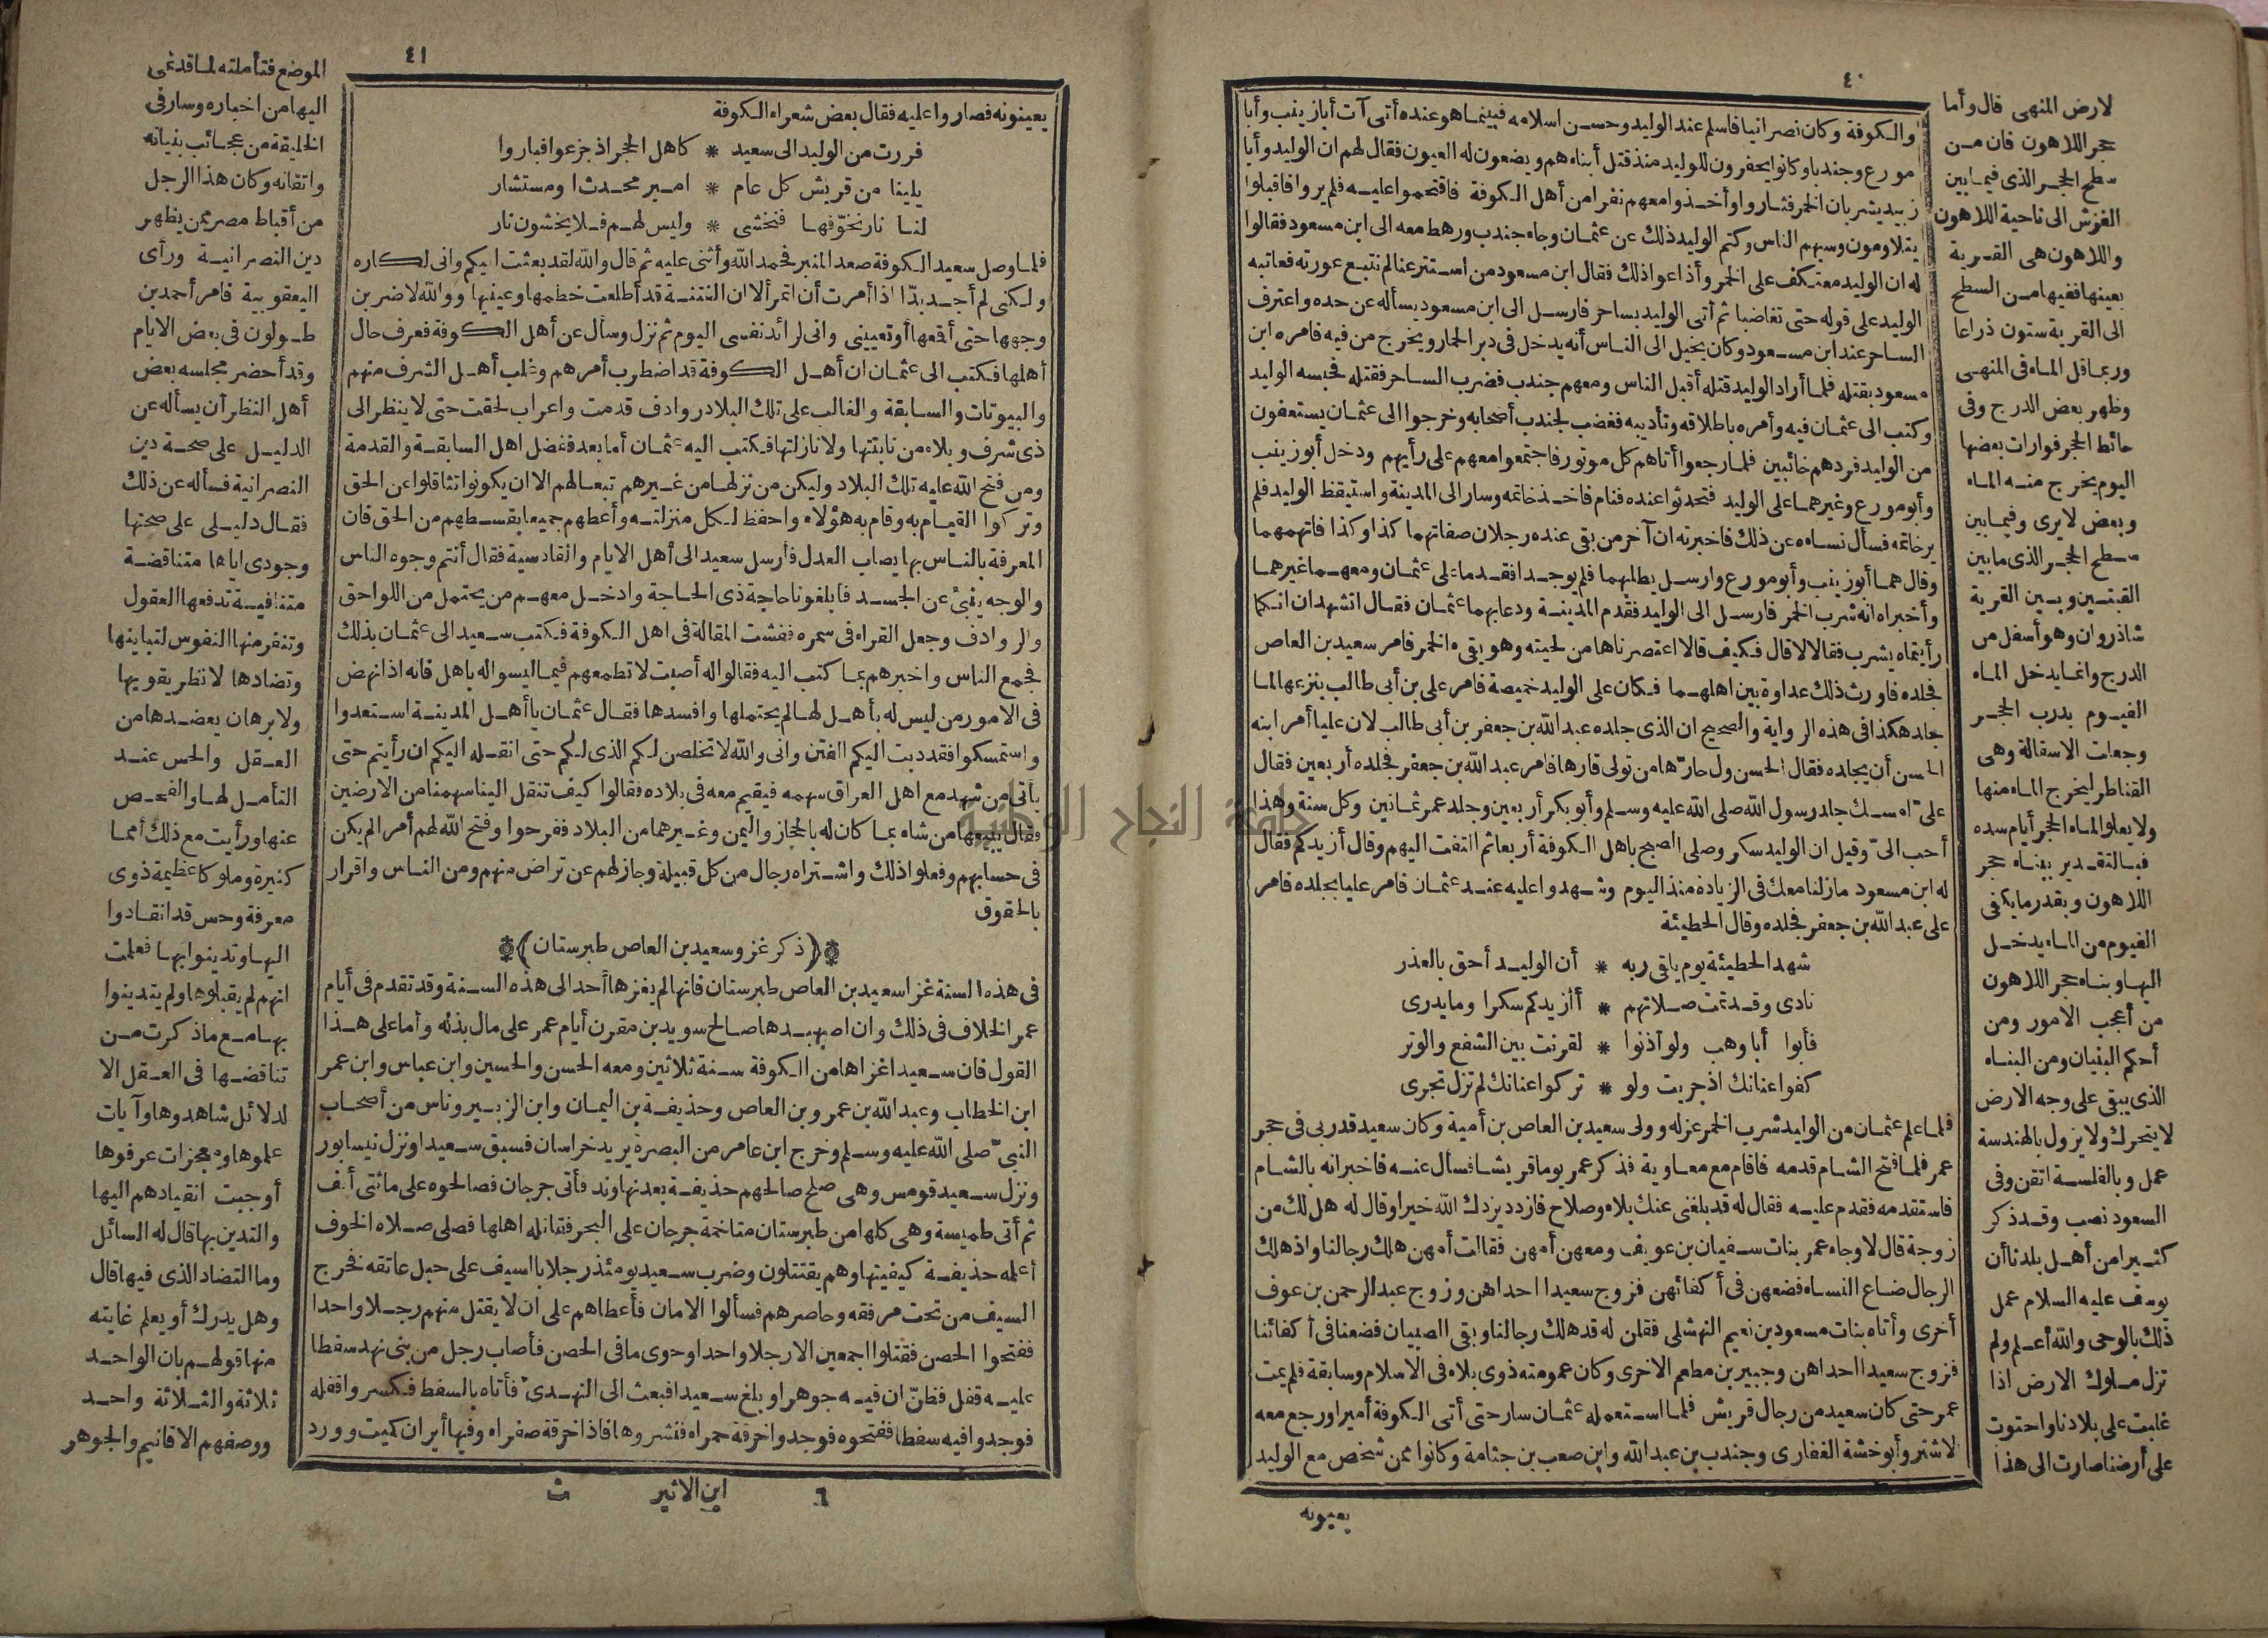 ٤٠
والكوفة وكان نصرانيا فاسلم عند الوليد وحسن اسلامه فبينما هو عنده أتى آت أبا زينب وأبا
مورع وجندبا وكانوا يحفرون للوليد منذ قتل أبناءهم ويضعون له العيون فقال لهم ان الوليد وأبا
زبيد يشربان الخمر فثاروا وأخذوا معهم نفرا من أهل الكوفة فاقتحموا عليه فلم يروا فاقبلوا
يتلاومون وسبهم الناس وكتم الوليد ذلك عن عثمان وجاء جندب ورهط معه الى ابن مسعود فقالوا
له ان الوليد معتكف على الخمر وأذاعوا ذلك فقال ابن مسعود من استتر عنا لم نتبع عورته فعاتبه
الوليد على قوله حتى تغاضبا ثم أتى الوليد بساحر فارسل الى ابن مسعود يسأله عن حده واعترف
الساحر عند ابن مسعود وكان يخيل الى الناس أنه يدخل فى دبر الحمار ويخرج من فيه فامره ابن
مسعود بقتله فلما أراد الوليد قتله أقبل الناس ومعهم جندب فضرب الساحر فقتله فحبسه الوليد
وكتب الى عثمان فيه وأمره باطلاقه وتأديبه فغضب لجندب أصحابه وخرجوا الى عثمان يستعفون
من الوليد فردهم خائبين فلما رجعوا أتاهم كل موتور فاجتمعوا معهم على رأيهم ودخل أبو زينب
وأبو مورع وغيرهما على الوليد فتحدثوا عنده فنام فاخذ خاتمه وسار الى المدينة واستيقظ الوليد فلم
ير خاتمه فسأل نساءه عن ذلك فاخبرنه ان آخر من بقى عنده رجلان صفاتهما كذا وكذا فاتهمهما
وقال هما أبو زينب وأبو مورع وارسل يطلبهما فلم يوجدا فقدما على عثمان ومعهما غيرهما
وأخبراه انه شرب الخمر فارسل الى الوليد فقدم المدينة ودعا بهما عثمان فقال اتشهدان انكما
رأيتماه يشرب فقالا لا قال فكيف قالا اعتصرناها من لحيته وهو يقىء الخمر فامر سعيد بن العاص
فجلده فاورث ذلك عداوة بين اهلهما فكان على الوليد خميصة فامر على بن أبى طالب بنزعها لما
جلد هكذا فى هذه الرواية والصحيح ان الذى جلده عبد الله بن جعفر بن أبى طالب لان عليا أمر ابنه
الحسن أن يجلده فقال الحسن ول حارّها من تولى قارها فامر عبد الله بن جعفر فجلده أربعين فقال
علىّ امسك جلد رسول الله صلى الله عليه وسلم وأبو بكر أربعين وجلد عمر ثمانين وكل سنة وهذا
أحب الىّ وقيل ان الوليد سكر وصلى الصبح باهل الكوفة أربعا ثم التفت اليهم وقال أزيدكم فقال
له ابن مسعود مازلنا معك فى الزيادة منذ اليوم وشهدوا عليه عند عثمان فامر عليا بجلده فامر
على عبد الله بن جعفر فجلده وقال الحطيئة
شهد الحطيئة يوم يلقى ربه * أن الوليد أحق بالعذر
نادى وقد تمت صلاتهم * أأزيدكم سكرا وما يدرى
فأبوا أبا وهب ولو أذنوا * لقرنت بين الشفع والوتر
كفوا عنانك اذ جريت ولو * تركوا عنانك لم تزل تجرى
فلما علم عثمان من الوليد شرب الخمر عزله وولى سعيد بن العاص بن أمية وكان سعيد قد ربى فى حجر
عمر فلما فتح الشام قدمه فاقام مع معاوية فذكر عمر يوما قريشا فسأل عنه فاخبر انه بالشام
فاستقدمه فقدم عليه فقال له قد بلغنى عنك بلاء وصلاح فازدد يزدك الله خيرا وقال له هل لك من
زوجة قال لا وجاء عمر بنات سفيان بن عويف ومعهن أمهن فقالت أمهن هلك رجالنا واذ هلك
الرجال ضاع النساء فضعهن فى أكفائهن فزوج سعيدا احداهن وزوج عبد الرحمن بن عوف
أخرى وأتاه بنات مسعود بن نعيم النهشلى فقلن له قد هلك رجالنا وبقى الصبيان فضعنا فى أكفائنا
فزوج سعيدا احداهن وجبير بن مطعم الاخرى وكان عمومته ذوى بلاء فى الاسلام وسابقة فلم يمت
عمر حتى كان سعيد من رجال قريش فلما استعمله عثمان سار حتى أتى الكوفة أميرا ورجع معه
لاشتر وأبو خشة الغفارى وجندب بن عبد الله وابن صعب بن جثامة وكانوا ممن شخص مع الوليد
يعيبونه
لارض المنهى قال وأما
حجر اللاهون فان من
سطح الحجر الذى فيما بين
الفرش الى ناحية اللاهون
واللاهون هى القرية
بعينها ففيها من السطح
الى القرية ستون ذراعا
وربما قل الماء فى المنهى
وظهر بعض الدرج وفى
حائط الحجر فوارات بعضها
اليوم يخرج منه الماء
وبعض لا يرى وفيما بين
سطح الحجر الذى ما بين
القبتين وبين القرية
شاذروان وهو أسفل من
الدرج وانما يدخل الماء
الفيوم بدرب الحجر
وجعلت الاسقالة وهى
القناطر ليخرج الماء منها
ولا يعلو الماء الحجر أيام سده
فبالتقدير بناء حجر
اللاهون وبقدر ما يكفى
الفيوم من الماء يدخل
اليها وبناء حجر اللاهون
من أعجب الامور ومن
أحكم البنيان ومن البناء
الذى يبقى على وجه الارض
لا يتحرك ولا يزول بالهندسة
عمل وبالفلسفة اتقن وفى
السعود نصب وقد ذكر
كثير من أهل بلدنا أن
يوسف عليه السلام عمل
ذلك بالوحى والله أعلم ولم
تزل ملوك الارض اذا
غلبت على بلادنا واحتوت
على أرضنا صارت الى هذا
٤١
يعيبونه فصاروا عليه فقال بعض شعراء الكوفة
فررت من الوليد الى سعيد * كاهل الحجر اذ جزعوا فباروا
يلينا من قريش كل عام * امير محدث او مستشار
لنا نار نخوّفها فنخشى * وليس لهم فلا يخشون نار
فلما وصل سعيد الكوفة صعد المنبر فحمد الله وأثنى عليه ثم قال والله لقد بعثت اليكم وانى لكاره
ولكنى لم أجد بدّا اذا أمرت أن اتمر ألا ان الفتنة قد أطلعت خطمها وعينيها ووالله لاضربن
وجهها حتى أقمعها أو تعيينى وانى لرائد نفسى اليوم ثم نزل وسأل عن أهل الكوفة فعرف حال
أهلها فكتب الى عثمان ان أهل الكوفة قد اضطرب أمرهم وغلب أهل الشرف منهم
والبيوتات والسابقة والغالب على تلك البلاد روادف قدمت واعراب لحقت حتى لا ينظر الى
ذى شرف وبلاء من نابتتها ولا نازلتها فكتب اليه عثمان أما بعد ففضل اهل السابقة والقدمة
ومن فتح الله عليه تلك البلاد وليكن من نزلها من غيرهم تبعا لهم الا ان يكونوا تثاقلوا عن الحق
وتركوا القيام به وقام به هؤلاء واحفظ لكل منزلته وأعطهم جميعا بقسطهم من الحق فان
المعرفة بالناس بها يصاب العدل فارسل سعيد الى أهل الايام والقادسية فقال أنتم وجوه الناس
والوجه ينبئ عن الجسد فابلغونا حاجة ذى الحاجة وادخل معهم من يحتمل من اللواحق
والروادف وجعل القراء فى سمره ففشت المقالة فى اهل الكوفة فكتب سعيد الى عثمان بذلك
فجمع الناس واخبرهم بما كتب اليه فقالوا له أصبت لا تطمعهم فيما ليسوا له باهل فانه اذا نهض
فى الامور من ليس له بأهل لها لم يحتملها وافسدها فقال عثمان يا أهل المدينة استعدوا
واستمسكوا فقد دبت اليكم الفتن وانى والله لا تخلصن لكم الذى لكم حتى انقله اليكم ان رأيتم حتى
يأتى من شهد مع اهل العراق سهمه فيقيم معه فى بلاده فقالوا كيف تنقل الينا سهمنا من الارضين
فقال يبيعها من شاء بما كان له بالحجاز واليمن وغيرهما من البلاد ففرحوا وفتح الله لهم أمرا لم يكن
فى حسابهم وفعلوا ذلك واشتراه رجال من كل قبيلة وجاز لهم عن تراض منهم ومن الناس واقرار
بالحقوق
(ذكر غزو سعيد بن العاص طبرستان)
فى هذه السنة غزا سعيد بن العاص طبرستان فانها لم يغزها أحد الى هذه السنة وقد تقدم فى أيام
عمر الخلاف فى ذلك وان اصبهبدها صالح سويد بن مقرن أيام عمر على مال بذله وأما على هذا
القول فان سعيدا غزاها من الكوفة سنة ثلاثين ومعه الحسن والحسين وابن عباس وابن عمر
ابن الخطاب وعبد الله بن عمرو بن العاص وحذيفة بن اليمان وابن الزبير وناس من أصحاب
النبىّ صلى الله عليه وسلم وخرج ابن عامر من البصرة يريد خراسان فسبق سعيدا ونزل نيسابور
ونزل سعيد قومس وهى صلح صالحهم حذيفة بعد نهاوند فأتى جرجان فصالحوه على مائتى ألف
ثم أتى طميسة وهى كلها من طبرستان متاخمة جرجان على البحر فقاتله اهلها فصلى صلاه الخوف
أعلمه حذيفة كيفيتها وهم يقتتلون وضرب سعيد يومئذ رجلا بالسيف على حبل عاتقه فخرج
السيف من تحت مرفقه وحاصرهم فسألوا الامان فأعطاهم على ان لا يقتل منهم رجلا واحدا
ففتحوا الحصن فقتلوا اجمعين الا رجلا واحدا وحوى ما فى الحصن فأصاب رجل من بنى نهد سفطا
عليه قفل فظنّ ان فيه جوهرا وبلغ سعيدا فبعث الى النهدىّ فأتاه بالسفط فكسروا قفله
فوجدوا فيه سفطا ففتحوه فوجدوا خرقة حمراء فنشروها فاذا خرقة صفراء وفيها أيران كميت وورد
٦ ابن الاثير ث
الموضع فتأملته لما قد نمى
اليها من اخباره وسار فى
الخليقة من عجائب بنيانه
واتقانه وكان هذا الرجل
من أقباط مصر ممن يظهر
دين النصرانية ورأى
اليعقوبية فامر أحمد بن
طولون فى بعض الايام
وقد أحضر مجلسه بعض
أهل النظر أن يسأله عن
الدليل على صحة دين
النصرانية فسأله عن ذلك
فقال دليلى على صحتها
وجودى اياها متناقضة
متنافية تدفعها العقول
وتنفر منها النفوس لتباينها
وتضادها لا نظر يقويها
ولا برهان يعضدها من
العقل والحس عند
التأمل لها والفحص
عنها ورأيت مع ذلك أمما
كثيرة وملوكا عظيمة ذوى
معرفة وحس قد انقادوا
اليها وتدينوا بها فعلمت
انهم لم يقبلوها ولم يتدينوا
بها مع ما ذكرت من
تناقضها فى العقل الا
لدلائل شاهدوها وآيات
علموها ومعجزات عرفوها
أوجبت انقيادهم اليها
والتدين بها قال له السائل
وما التضاد الذى فيها قال
وهل يدرك أو يعلم غايته
منها قولهم بان الواحد
ثلاثة والثلاثة واحد
ووصفهم الاقانيم والجوهر
حلقة النجاح الوطنية